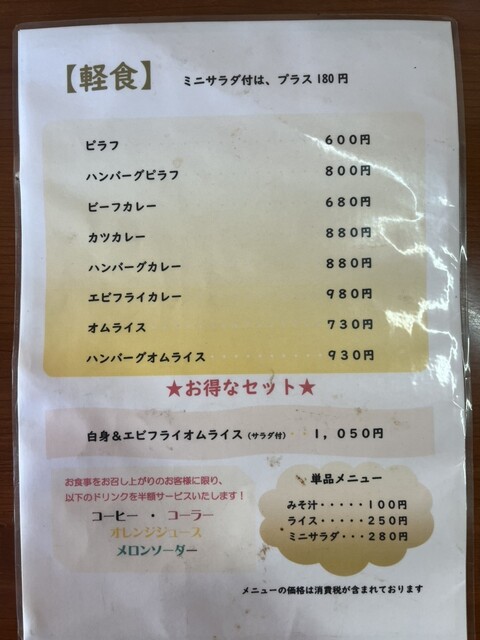 【軽食】 ミニサラダ付は、プラス180円
ピラフ 600円
ハンバーグピラフ 800円
ビーフカレー 680円
カツカレー 880円
ハンバーグカレー 880円
エビフライカレー 980円
オムライス 730円
ハンバーグオムライス・・・・・・・・・・930円
★お得なセット★
白身&エビフライオムライス(サラダ付)・・ 1,050円
お食事をお召し上がりのお客様に限り、
以下のドリンクを半額サービスいたします！
コーヒー ・ コーラー
オレンジジュース
メロンソーダー
単品メニュー
みそ汁・・・・・100円
ライス・・・・・250円
ミニサラダ・・・280円
メニューの価格は消費税が含まれております